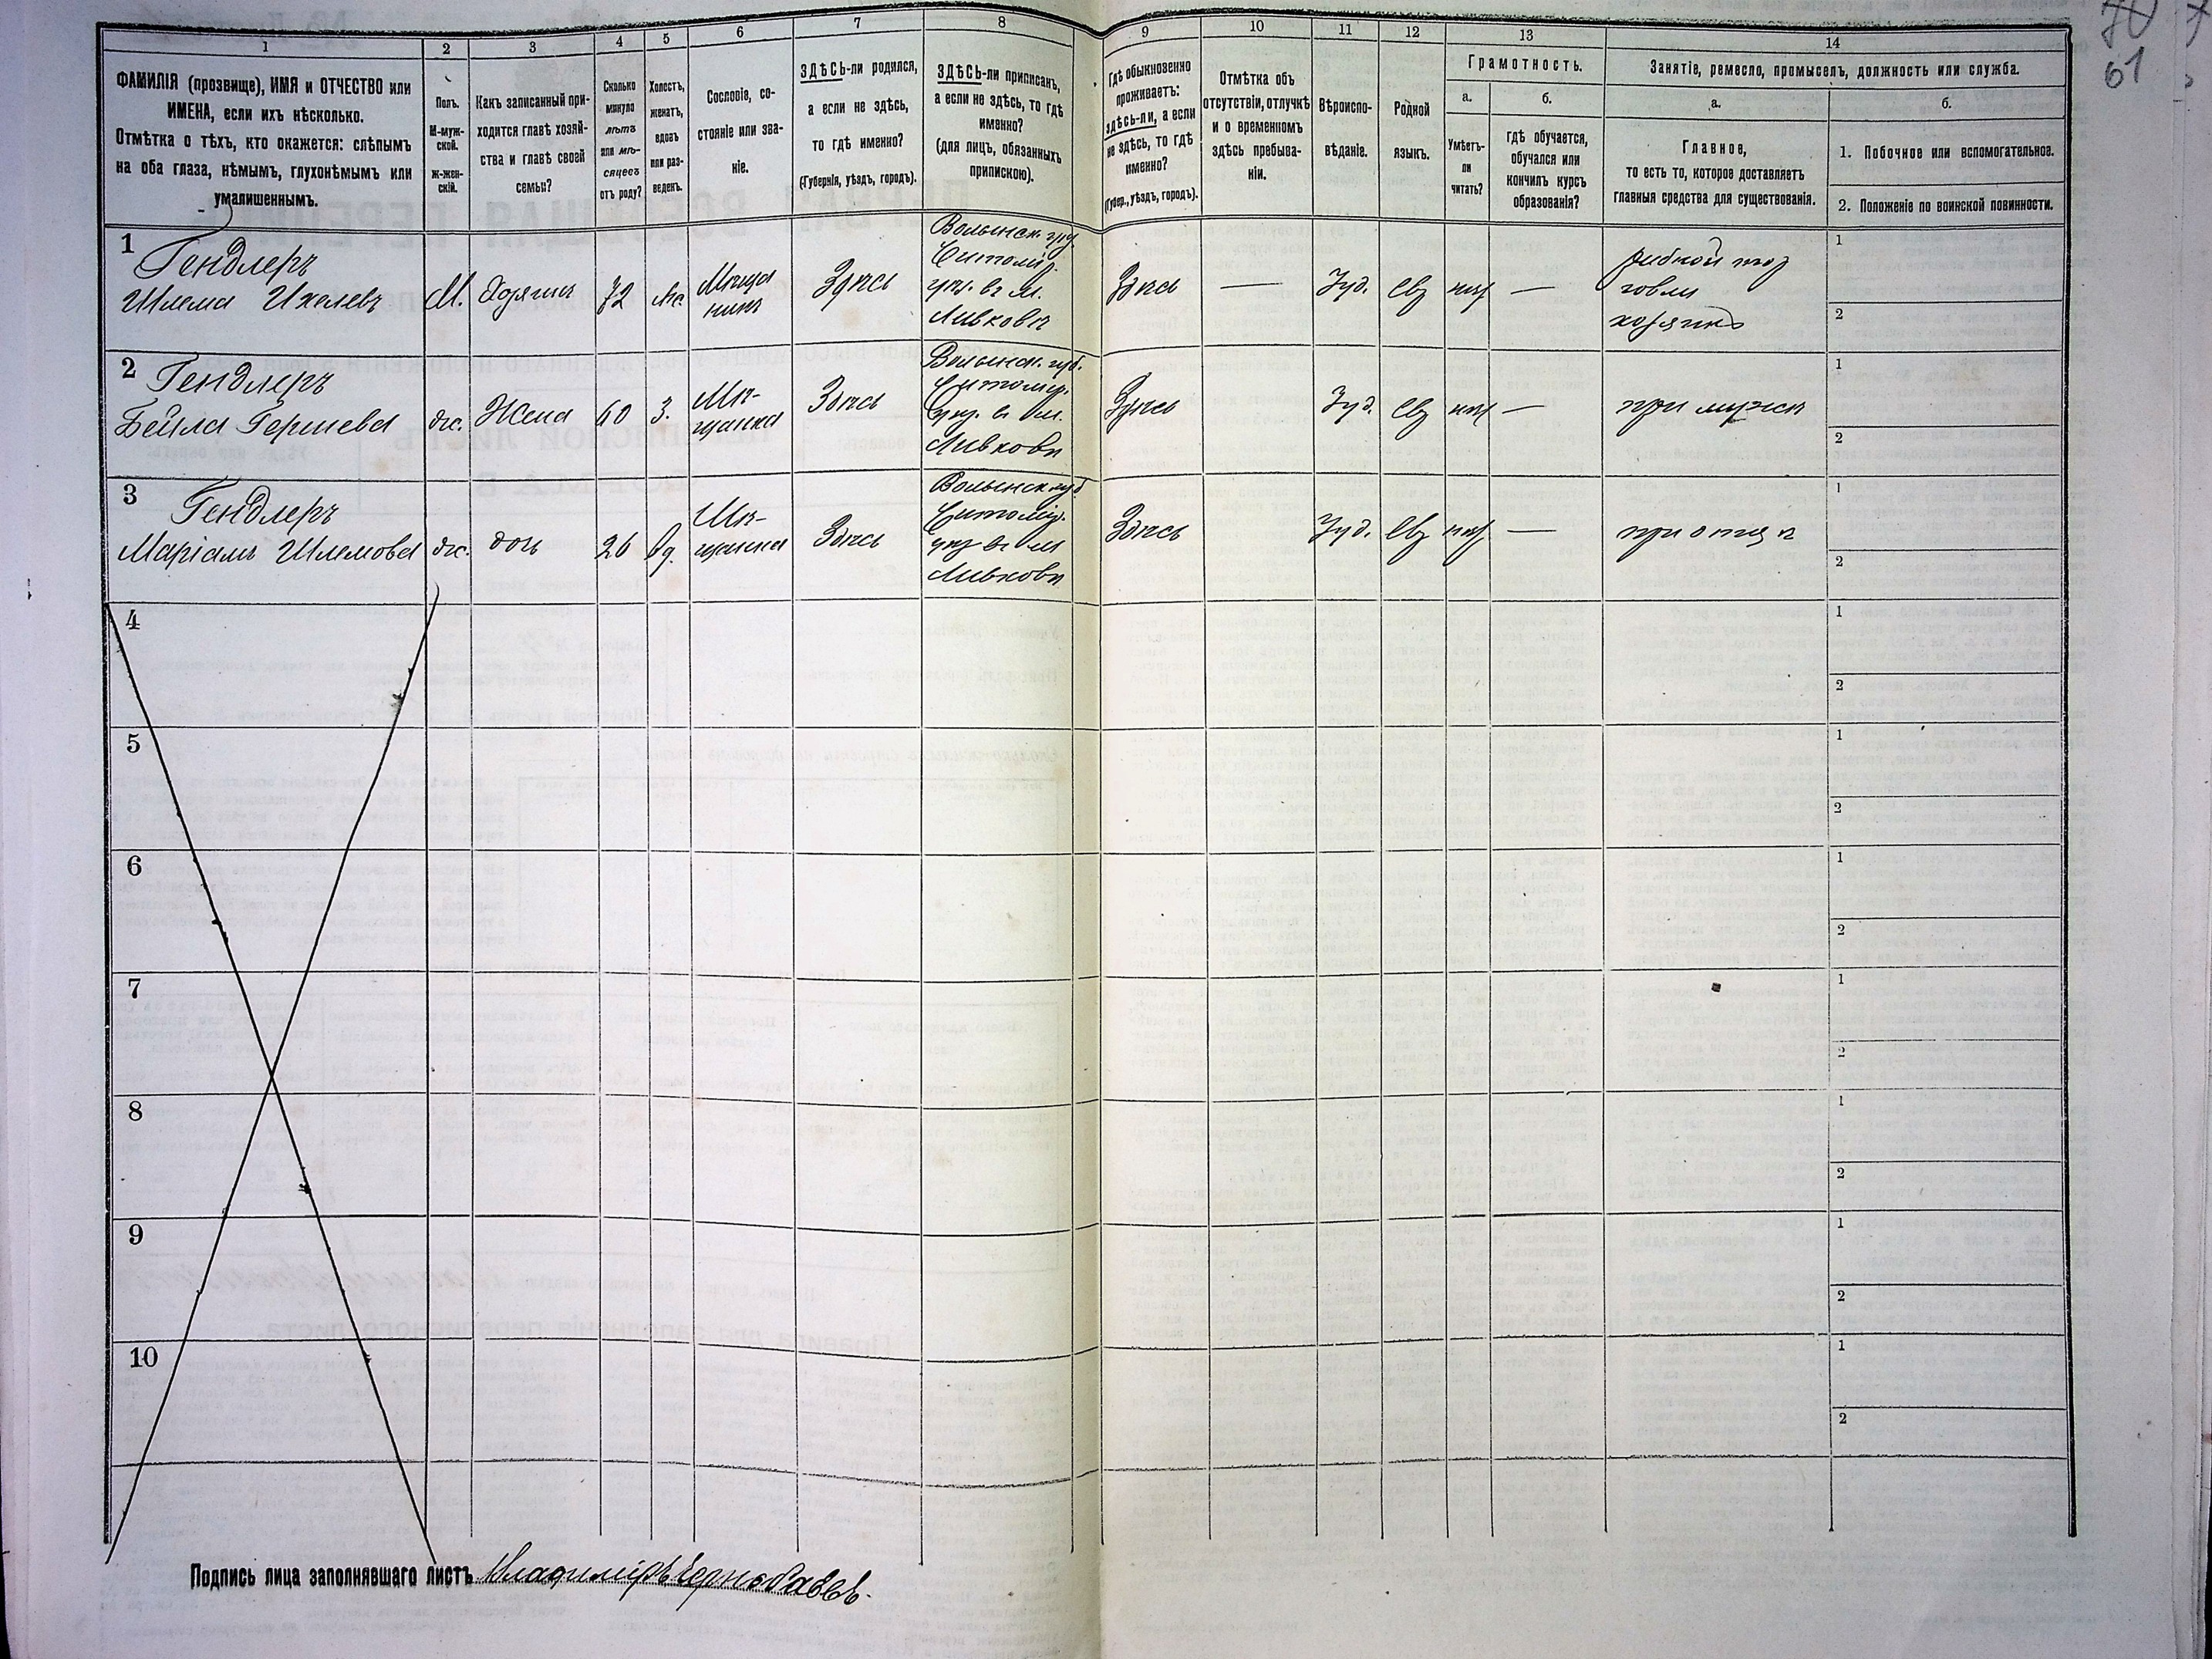 70
61
1
2
3
4
5
6
7
8
9
10
11
12
13
14
ФАМИЛІЯ (прозвище), ИМЯ и ОТЧЕСТВО или
ИМЕНА, если ихъ нѣсколько.
Отмѣтка о тѣхъ, кто окажется: слѣпымъ
на оба глаза, нѣмымъ, глухонѣмымъ или
умалишеннымъ.
Полъ.
М-муж-
ской.
Ж-жен-
скій.
Какъ записанный при-
ходится главѣ хозяй-
ства и главѣ своей
семьи?
Сколько
минуло
лѣтъ
или мѣ-
сяцевъ
отъ роду?
Холостъ,
женатъ,
вдовъ
или раз-
веденъ.
Сословіе, со-
стояніе или зва-
ніе.
ЗДѢСЬ-ли родился,
а если не здѣсь,
то гдѣ именно?
(Губернія, уѣздъ, городъ).
ЗДѢСЬ-ли приписанъ,
а если не здѣсь, то гдѣ
именно?
(для лицъ, обязанныхъ
припискою).
Гдѣ обыкновенно
проживаетъ:
здѣсь-ли, а если
не здѣсь, то гдѣ
именно?
(Губер., уѣздъ, городъ).
Отмѣтка объ
отсутствіи, отлучкѣ
и о временномъ
здѣсь пребыва-
ніи.
Вѣроиспо-
вѣданіе.
Родной
языкъ.
Грамотность.
а.
Умѣетъ-
ли
читать?
б.
гдѣ обучается,
обучался или
кончилъ курсъ
образованія?
Занятіе, ремесло, промыселъ, должность или служба.
а.
Главное,
то есть то, которое доставляетъ
главныя средства для существованія.
б.
1. Побочное или вспомогательное.
2. Положеніе по воинской повинности.
1
Гендлеръ
Шлема Ихелевъ
М.
Хозяинъ
72
Же.
Мѣща
нинъ
Здѣсь
Волынск. гу.
Житомір.
уѣз. въ м.
Ливковѣ
Здѣсь
—
Іуд.
Евр
нѣт
—
рыбной тор
говли
хозяинъ
1
2
2
Гендлеръ
Бейла Гершева
ж.
Жена
60
З.
Мѣ-
щанка
Здѣсь
Волынск. губ.
Житомір.
уѣз. въ м.
Ливковѣ
Здѣсь
Іуд.
Евр
нѣт
—
при мужѣ
1
2
3
Гендлеръ
Маріамъ Шлемова
ж.
дочь
26
Мѣ-
щанка
Здѣсь
Волынск губ
Житомір.
уѣз въ м
Ливковѣ
Здѣсь
Іуд.
Евр
нѣт
—
при отцѣ
1
2
4
1
2
5
1
2
6
1
2
7
1
2
8
1
2
9
1
2
10
1
2
Подпись лица заполнявшаго листъ Владиміръ Чернобаевъ.